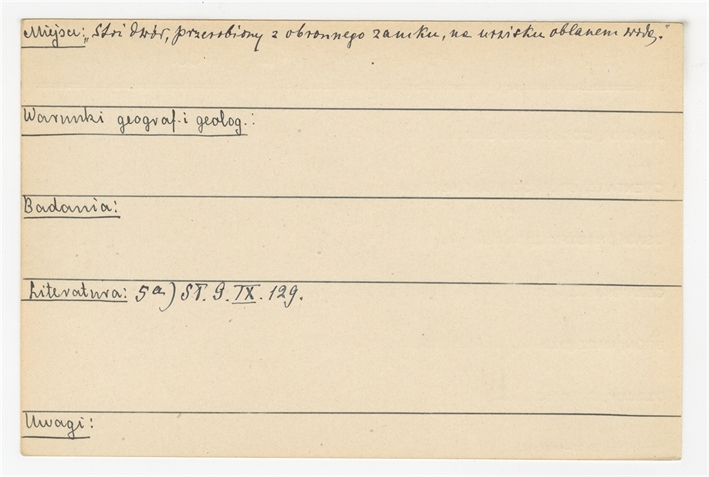 Miejsce: „Stoi dwór, przerobiony z obronnego zamku, na urzisku oblanem wodą.”
Warunki geograf. i geolog.:
Badania:
Literatura: 5a) ST. G. IX. 129.
Uwagi: